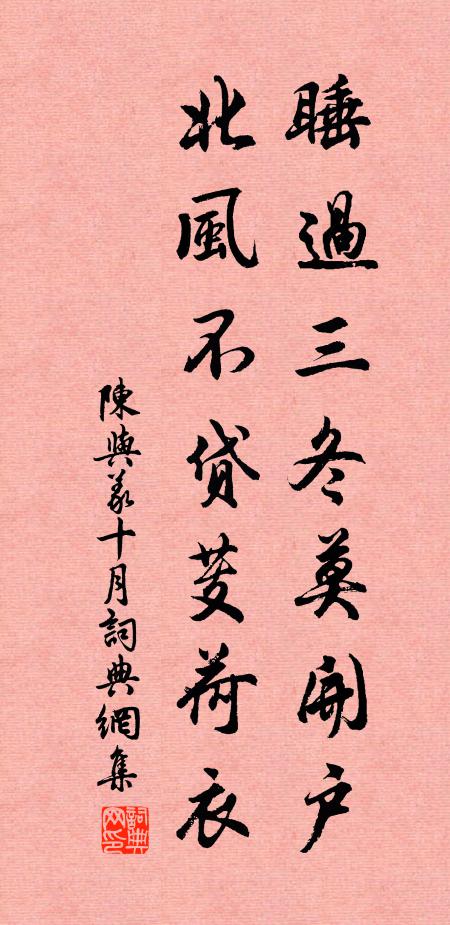 睡過三冬莫開戶
北風不貸芰荷衣
陳與義十月詞典網集
詞典网印